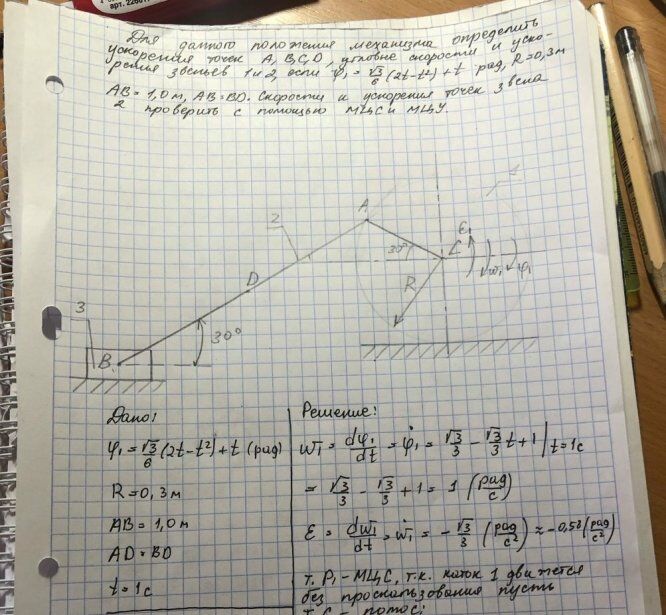 Для данного положения механизма определить
ускорения точек A, B, C, D, угловые скорости и уско-
рения звеньев 1 и 2, если φ₁ = √3/6 (2t-t²)+t рад, R=0,3м
AB = 1,0 м, AB=BD. Скорости и ускорения точек звена
2 проверить с помощью МЦС и МЦУ.
A
2
30°
C
ε₁
ω₁
φ₁
R
D
3
30°
B
Дано:
φ₁ = √3/6 (2t-t²)+t (рад)
R = 0,3 м
AB = 1,0 м
AD = BD
t = 1c
Решение:
ω₁ = dφ₁/dt = φ̇₁ = √3/3 - √3/3 t + 1 | t=1c
= √3/3 - √3/3 + 1 = 1 (рад/с)
ε = dω₁/dt = ω̇₁ = -√3/3 (рад/с²) ≈ -0,58 (рад/с²)
т. P₁ - МЦС, т.к. каток 1 движется
без проскальзывания пусть
т. C - полюс: